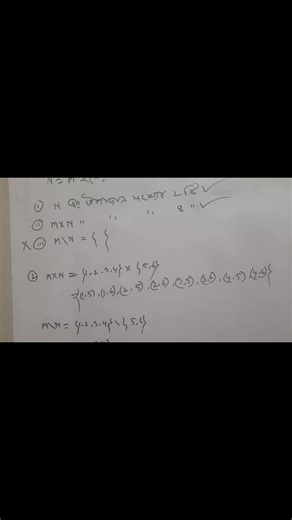 ① N এর উপাদান সংখ্যা ২ টি ✓
② M×N " " " 8 " ✓
X ③ M\N = { }
② M×N = {1,2,3,4} × {5,6}
={(1,5),(1,6),(2,5),(2,6),(3,5),(3,6),(4,5),(4,6)}
M\N = {1,2,3,4} \ {5,6}